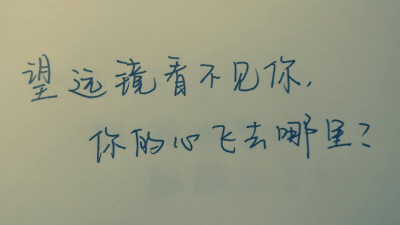 望远镜看不见你,
你的心飞去哪里?